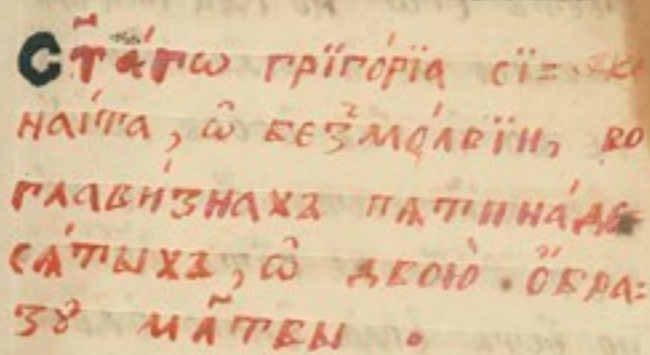 Ст҃а́гѡ григо́рїа сї=
наи́та, ѡ҆ безмо́лвїи, во
глави́знахъ пѧтина́де=
сѧ́тыхъ, ѡ҆ двою̀ ѻ҆бра=
зꙋ мл҃твы .